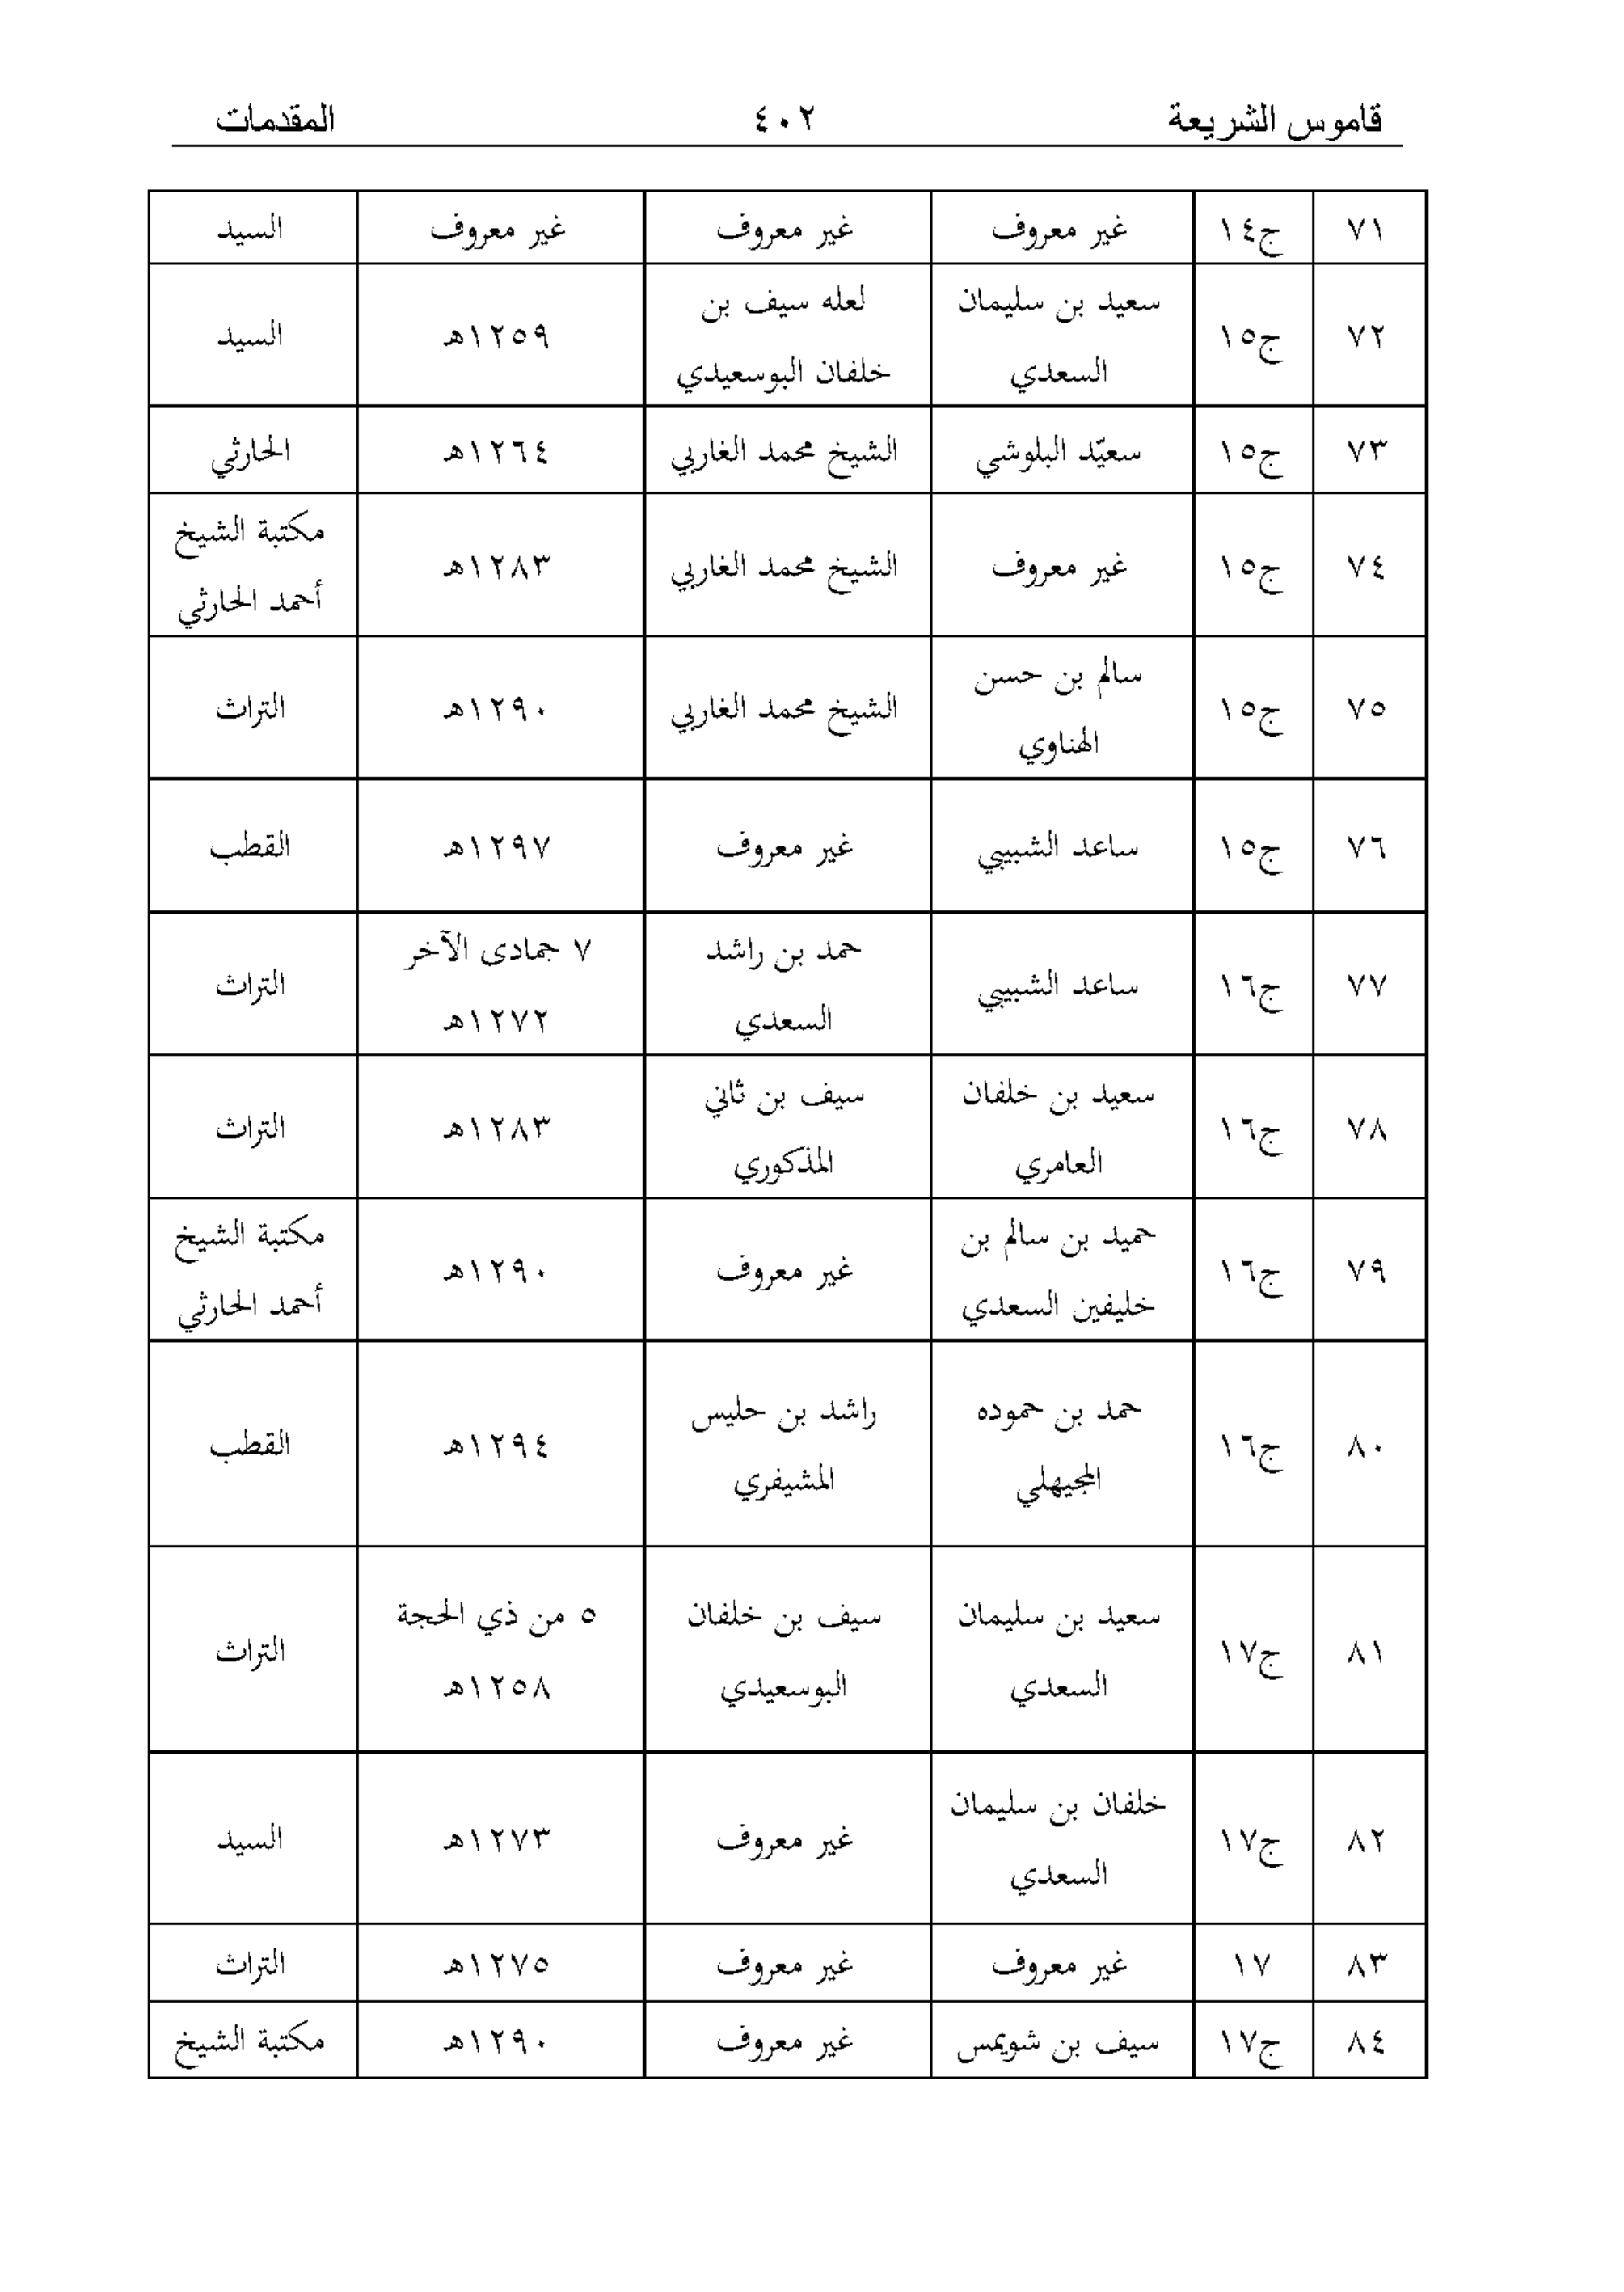 قاموس الشريعة ٤٠٢ المقدمات
٧١ ج١٤ غير معروف غير معروف غير معروف السيد
٧٢ ج١٥ سعيد بن سليمان السعدي لعله سيف بن خلفان البوسعيدي ١٢٥٩هـ السيد
٧٣ ج١٥ سعيّد البلوشي الشيخ محمد الغاربي ١٢٦٤هـ الحارثي
٧٤ ج١٥ غير معروف الشيخ محمد الغاربي ١٢٨٣هـ مكتبة الشيخ أحمد الحارثي
٧٥ ج١٥ سالم بن حسن الهناوي الشيخ محمد الغاربي ١٢٩٠هـ التراث
٧٦ ج١٥ ساعد الشبيبي غير معروف ١٢٩٧هـ القطب
٧٧ ج١٦ ساعد الشبيبي حمد بن راشد السعدي ٧ جمادى الآخر ١٢٧٢هـ التراث
٧٨ ج١٦ سعيد بن خلفان العامري سيف بن ثاني المذكوري ١٢٨٣هـ التراث
٧٩ ج١٦ حميد بن سالم بن خليفين السعدي غير معروف ١٢٩٠هـ مكتبة الشيخ أحمد الحارثي
٨٠ ج١٦ حمد بن حموده المجيهلي راشد بن حليس المشيفري ١٢٩٤هـ القطب
٨١ ج١٧ سعيد بن سليمان السعدي سيف بن خلفان البوسعيدي ٥ من ذي الحجة ١٢٥٨هـ التراث
٨٢ ج١٧ خلفان بن سليمان السعدي غير معروف ١٢٧٣هـ السيد
٨٣ ١٧ غير معروف غير معروف ١٢٧٥هـ التراث
٨٤ ج١٧ سيف بن شويمس غير معروف ١٢٩٠هـ مكتبة الشيخ